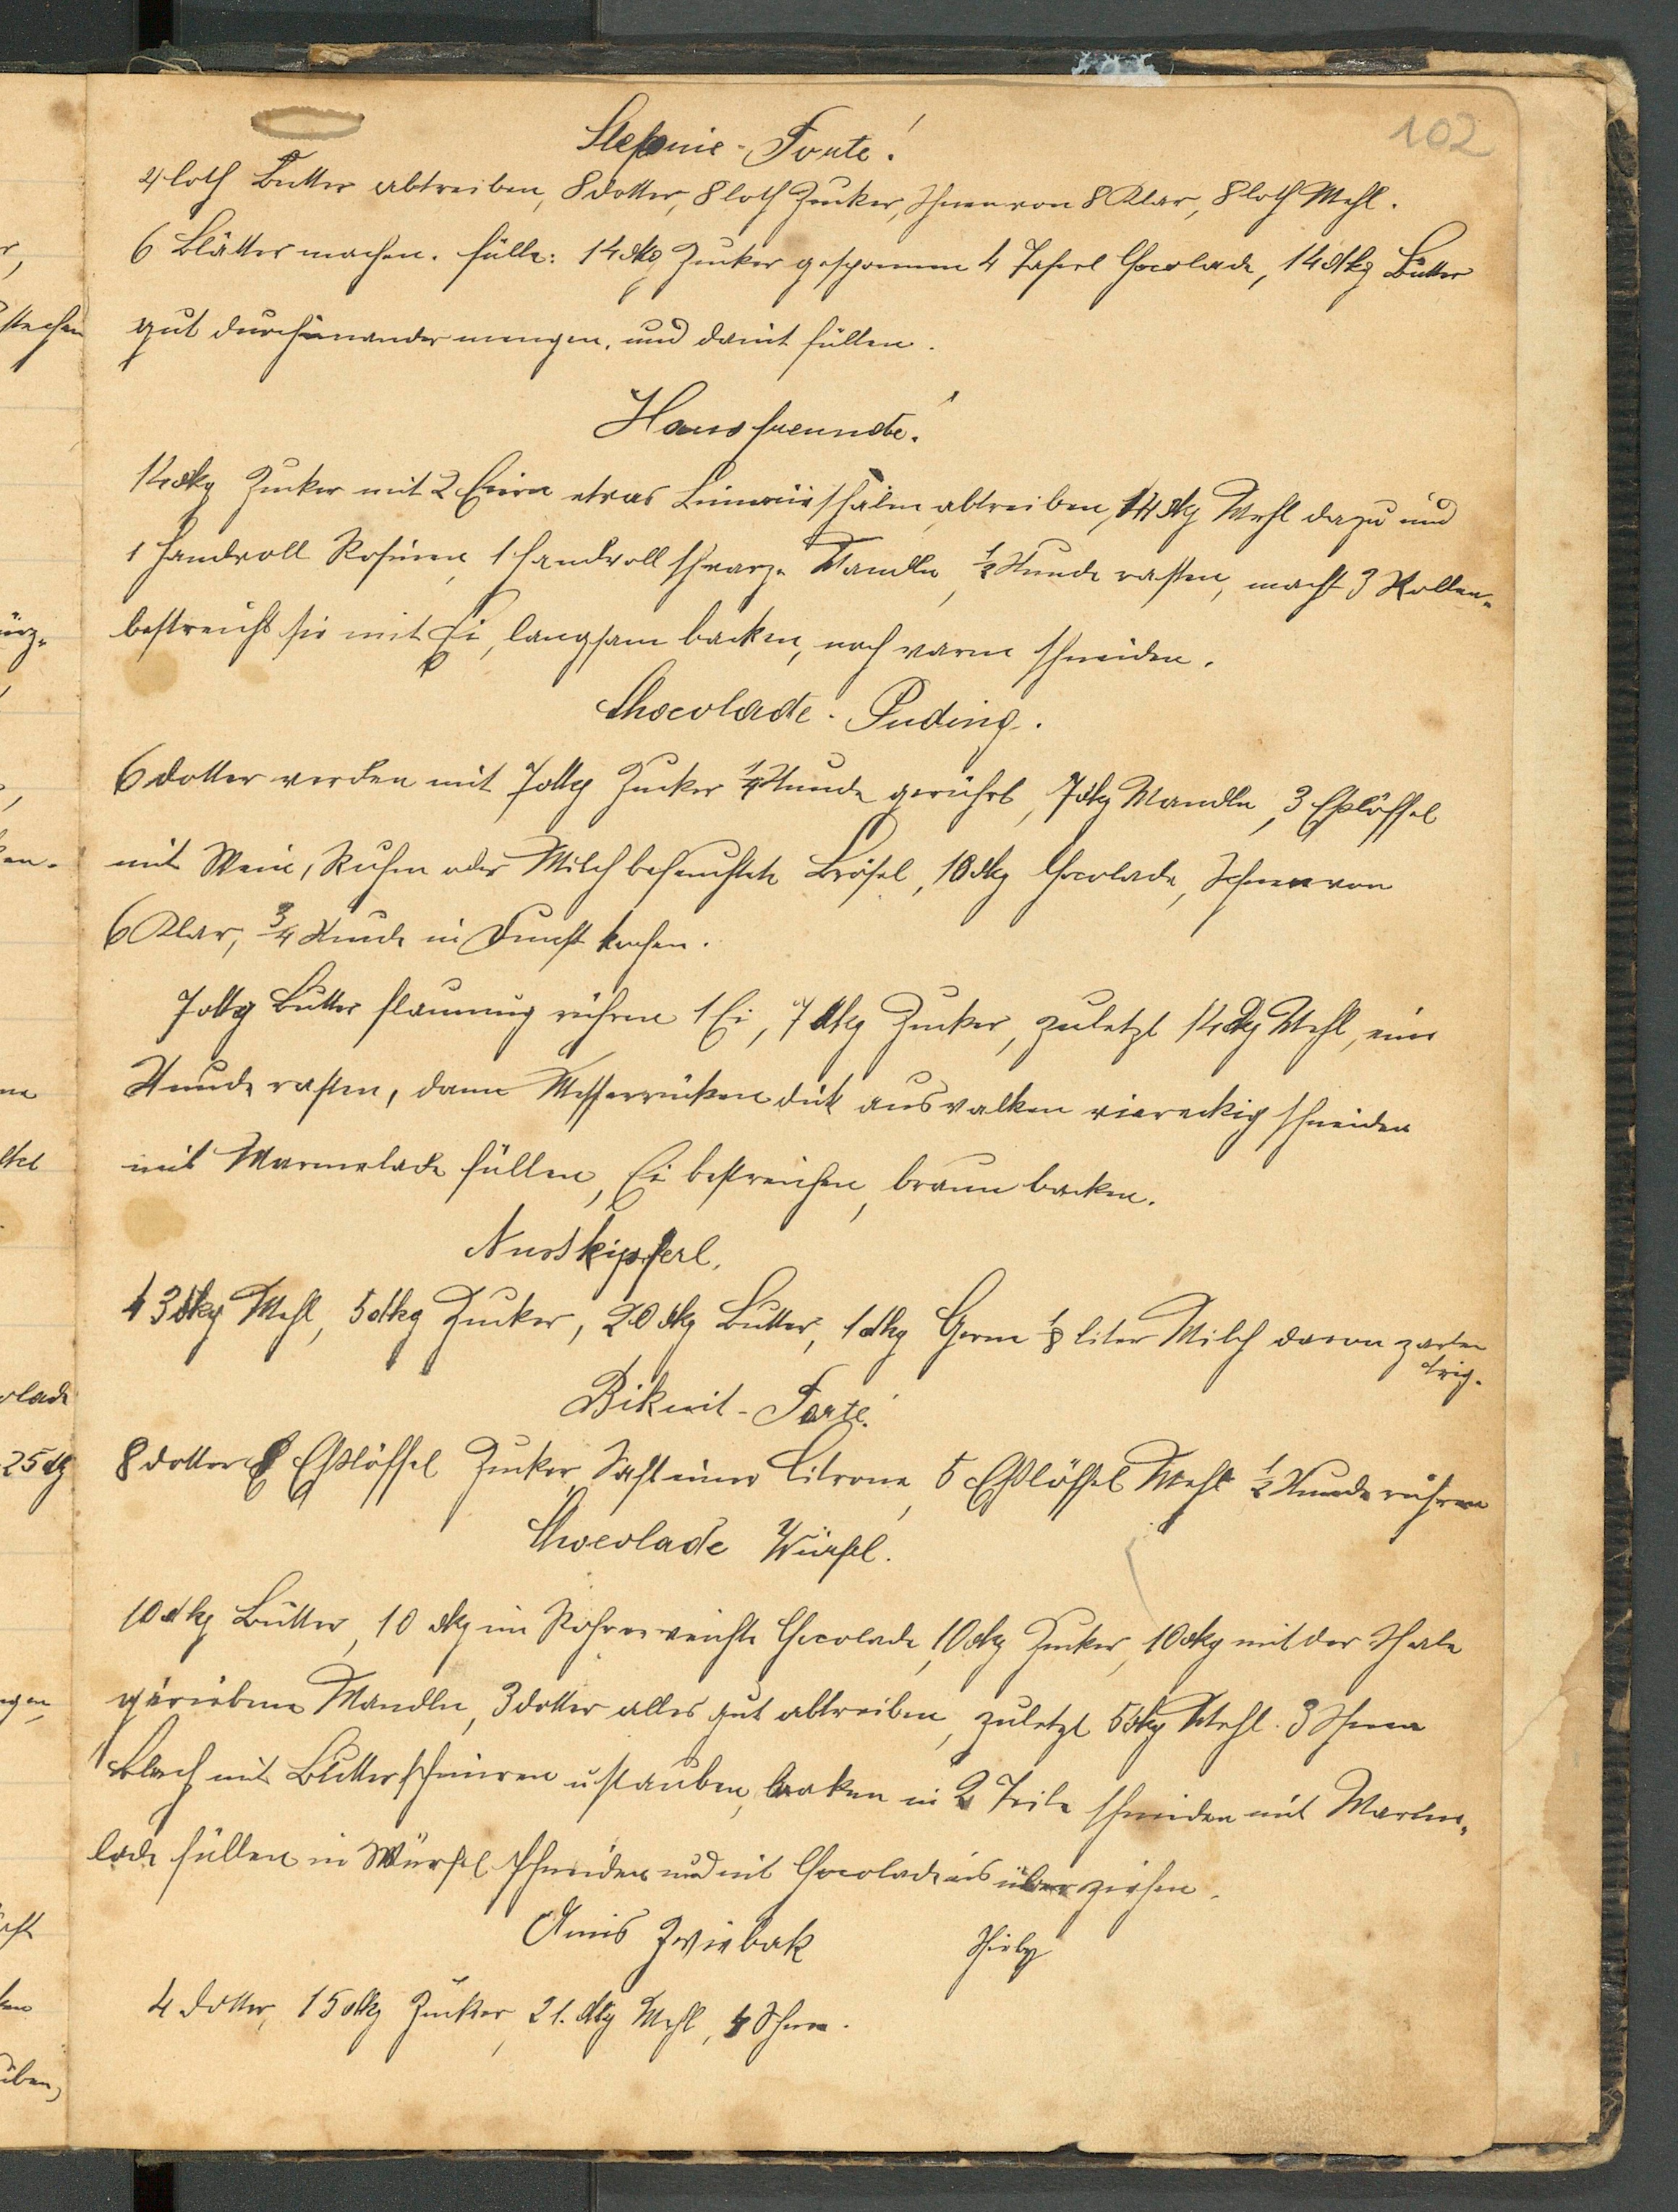 102
Stefanie-Torte!
4 loth Butter abtreiben, 8 dotter, 8 loth Zucker, Schnee von 8 Klar, 8 loth Mehl.
6 Blätter machen. Fülle: 14 dkg Zucker gesponnen 4 Taferl Chocolade, 14 dkg Butter
gut durcheinander mengen, und damit füllen.
Hausfreunde!
14 dkg Zucker mit 2 Eiern etwas abtreiben, 14 dkg Mehl dazu und
1 Handvoll Rosinen, 1 Handvoll schwarze Mandln, 1/2 Stunde rasten, macht 3 Rollen,
bestreicht sie mit Ei, langsam backen, noch warm schneiden.
Chocolade-Puding.
6 dotter werden mit 7 dkg Zucker 1/4 Stunde gerührt, 7 dkg Mandln, 3 Eßlöffel
mit Wein, Ruhm oder Milch befeuchtete Brösel, 10 dkg Chocolade, Schnee von
6 Klar, 3/4 Stunde in Dunst kochen.
7 dkg Butter flaumig rühren 1 Ei, 7 dkg Zucker, zuletzt 14 dkg Mehl, eine
Stunde rasten, dann Messerrüken dick auswalken viereckig schneiden
mit Marmelade füllen, Ei bestreichen, braun backen.
Nusskipferl.
43 dkg Mehl, 5 dkg Zucker, 20 dkg Butter, 1 dkg Germ 1/8 liter Milch davon zarten
Teig.
Bikuit-Torte!
8 dotter 8 Eßlöffel Zucker, Saft einer Citrone, 5 Eßlöffel Mehl 1/2 Stunde rühren
Chocolade Würfel.
10 dkg Butter, 10 dkg im Rohr erweichte Chocolade, 10 dkg Zucker, 10 dkg mit der Schale
geriebene Mandln, 3 dotter alles gut abtreiben, zuletzt 5 dkg Mehl. 3 Schnee
Blech mit Butter schmiren u stauben, baken in 2 Teile schneiden mit Marme-
lade füllen in Würfel schneiden und mit Chocoladeeis überziehen.
Anis Zwiebak
4 dotter, 15 dkg Zucker, 21. dkg Mehl, 4 Schnee.